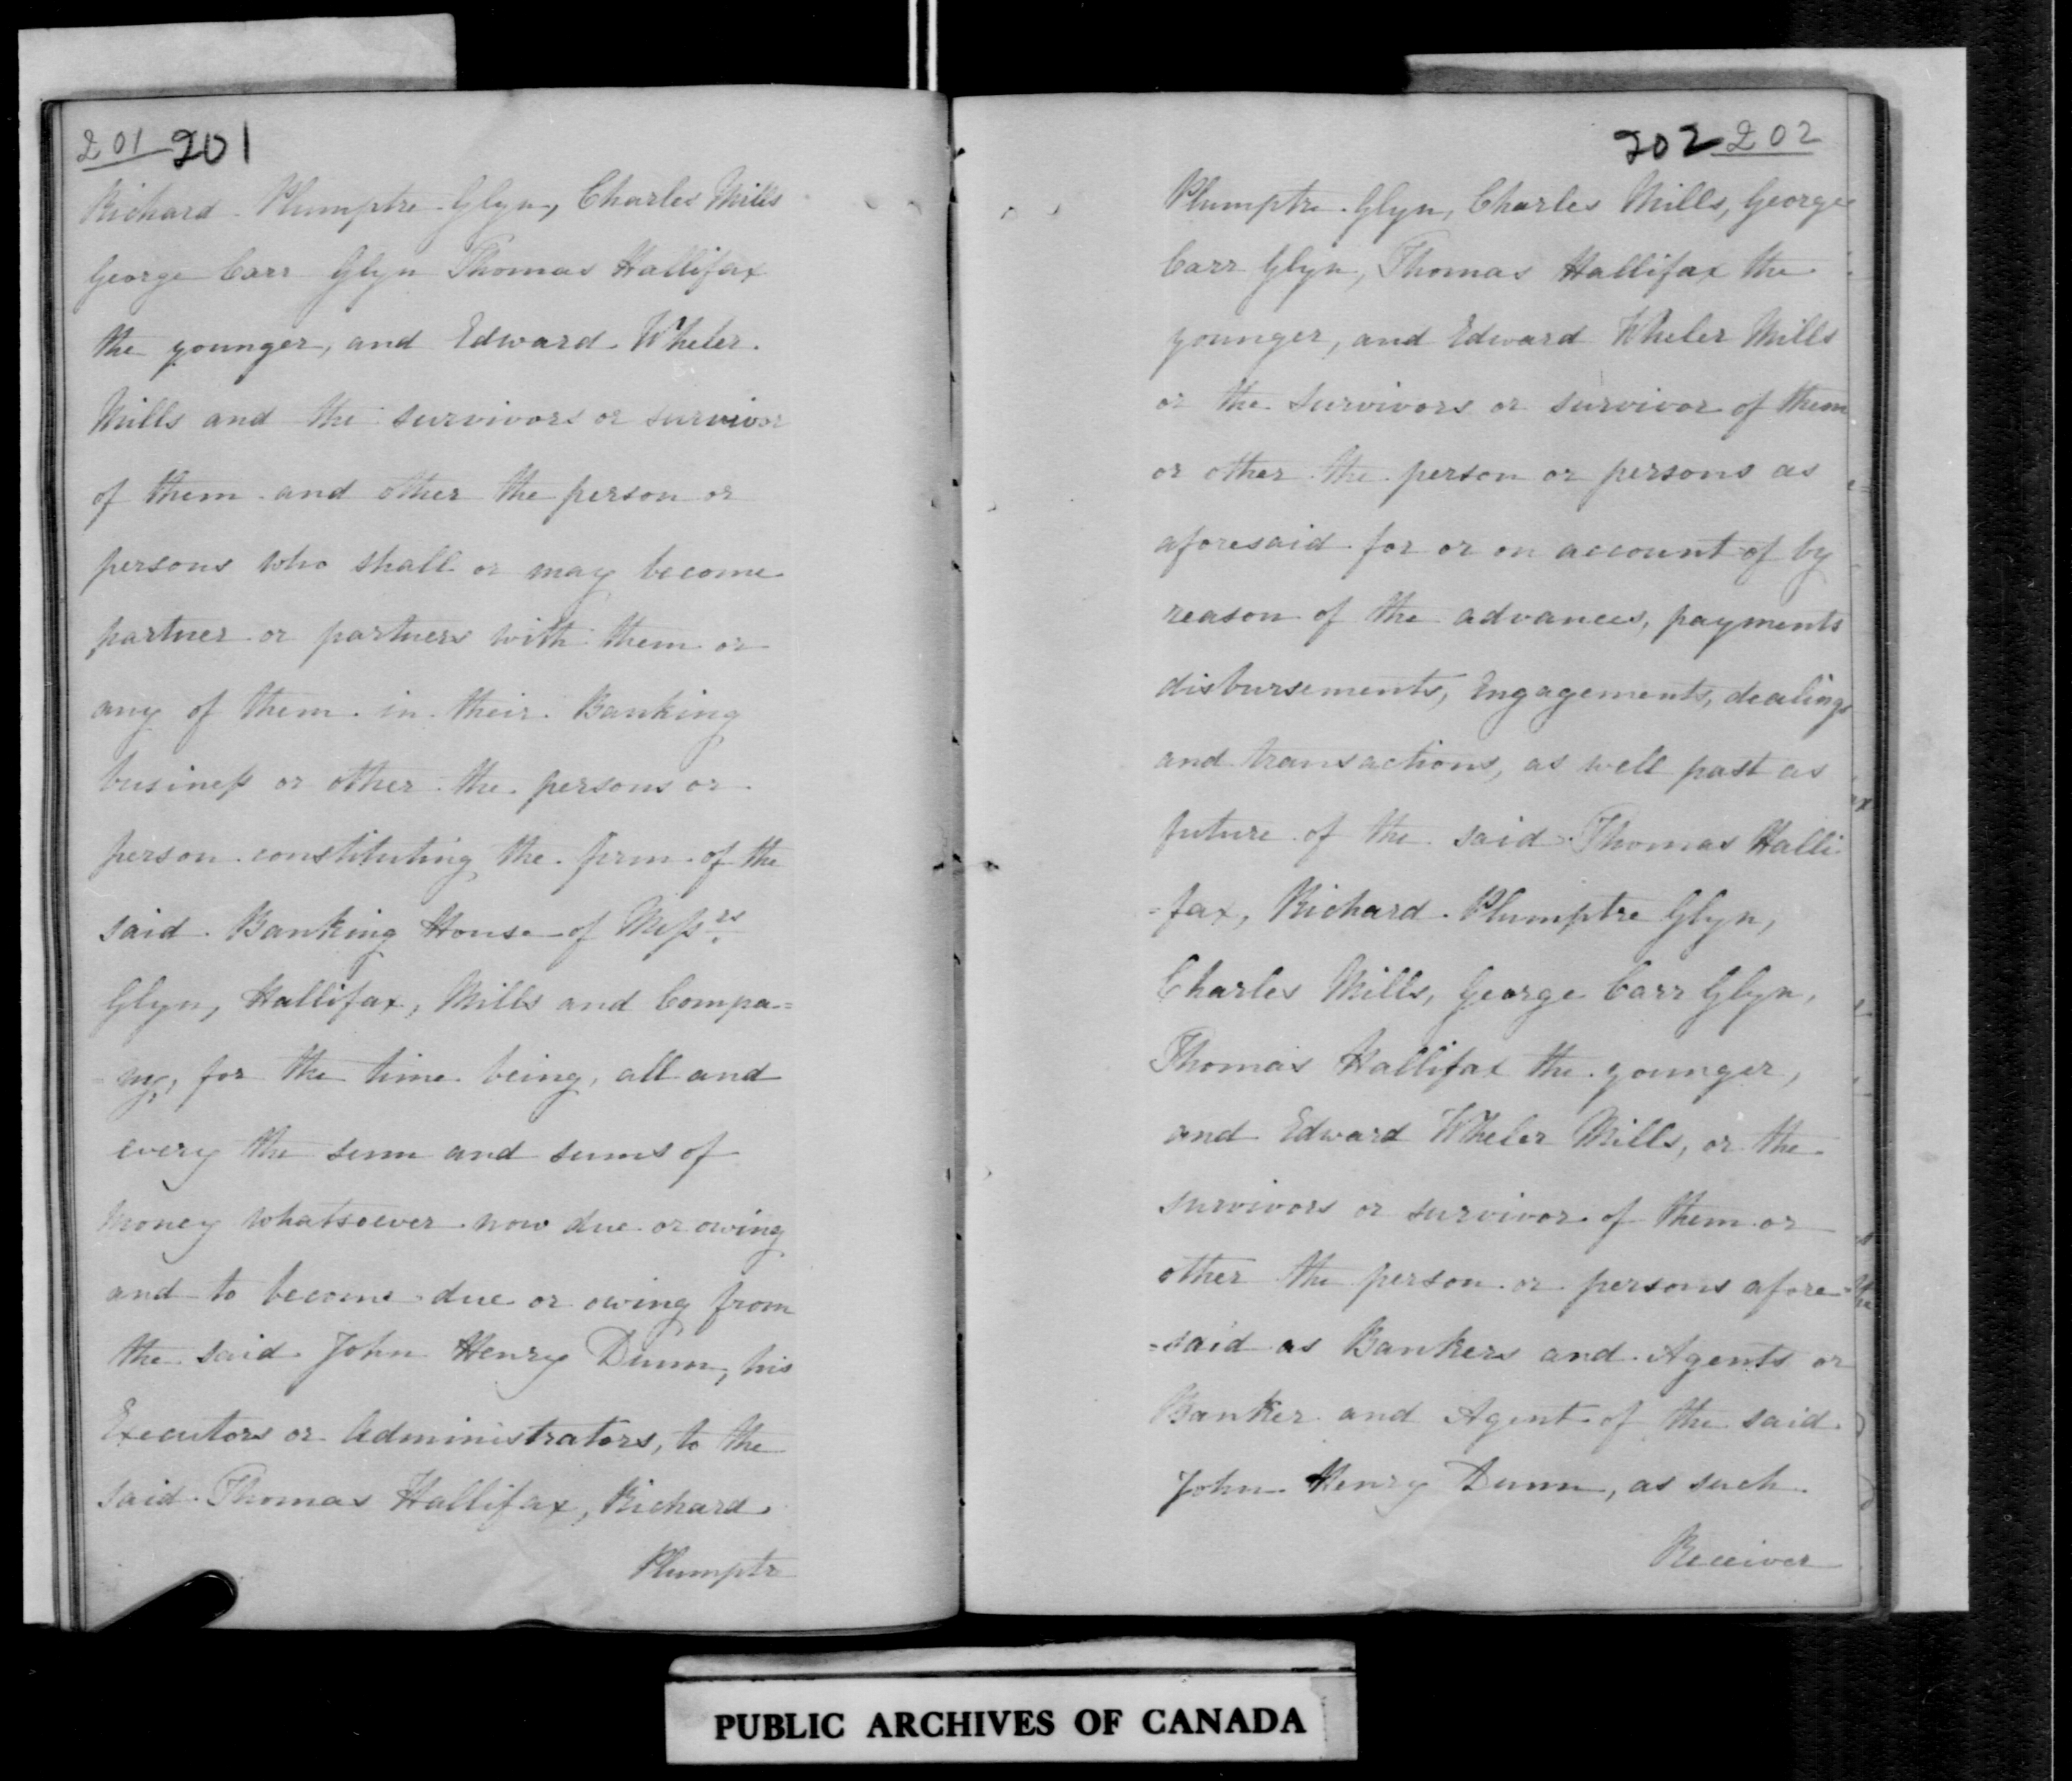 201 201
Richard Plumptre Glyn, Charles Mills
George Carr Glyn Thomas Hallifax
the younger, and Edward Wheler
Mills and the survivors or survivor
of them and other the person or
persons who shall or may become
partner or partners with them or
any of them in their Banking
business or other the persons or
person constituting the firm of the
said Banking House of Messrs.
Glyn, Hallifax, Mills and Compa=
ny, for the time being, all and
every the sum and sums of
money whatsoever now due or owing
and to become due or owing from
the said John Henry Dunn, his
Executors or Administrators, to the
said Thomas Hallifax, Richard
Plumptre
202 202
Plumptre Glyn, Charles Mills, George
Carr Glyn, Thomas Hallifax the
younger, and Edward Wheler Mills
or the survivors or survivor of them
or other the person or persons as
aforesaid for or on account of by
reason of the advances, payments
disbursements, Engagements, dealings
and transactions, as well past as
future of the said Thomas Halli
=fax, Richard Plumptre Glyn,
Charles Mills, George Carr Glyn,
Thomas Hallifax the younger,
and Edward Wheler Mills, or the
survivors or survivor of them or
other the person or persons afore=
=said as Bankers and Agents or
Banker and Agent of the said
John Henry Dunn, as such
Receiver
PUBLIC ARCHIVES OF CANADA